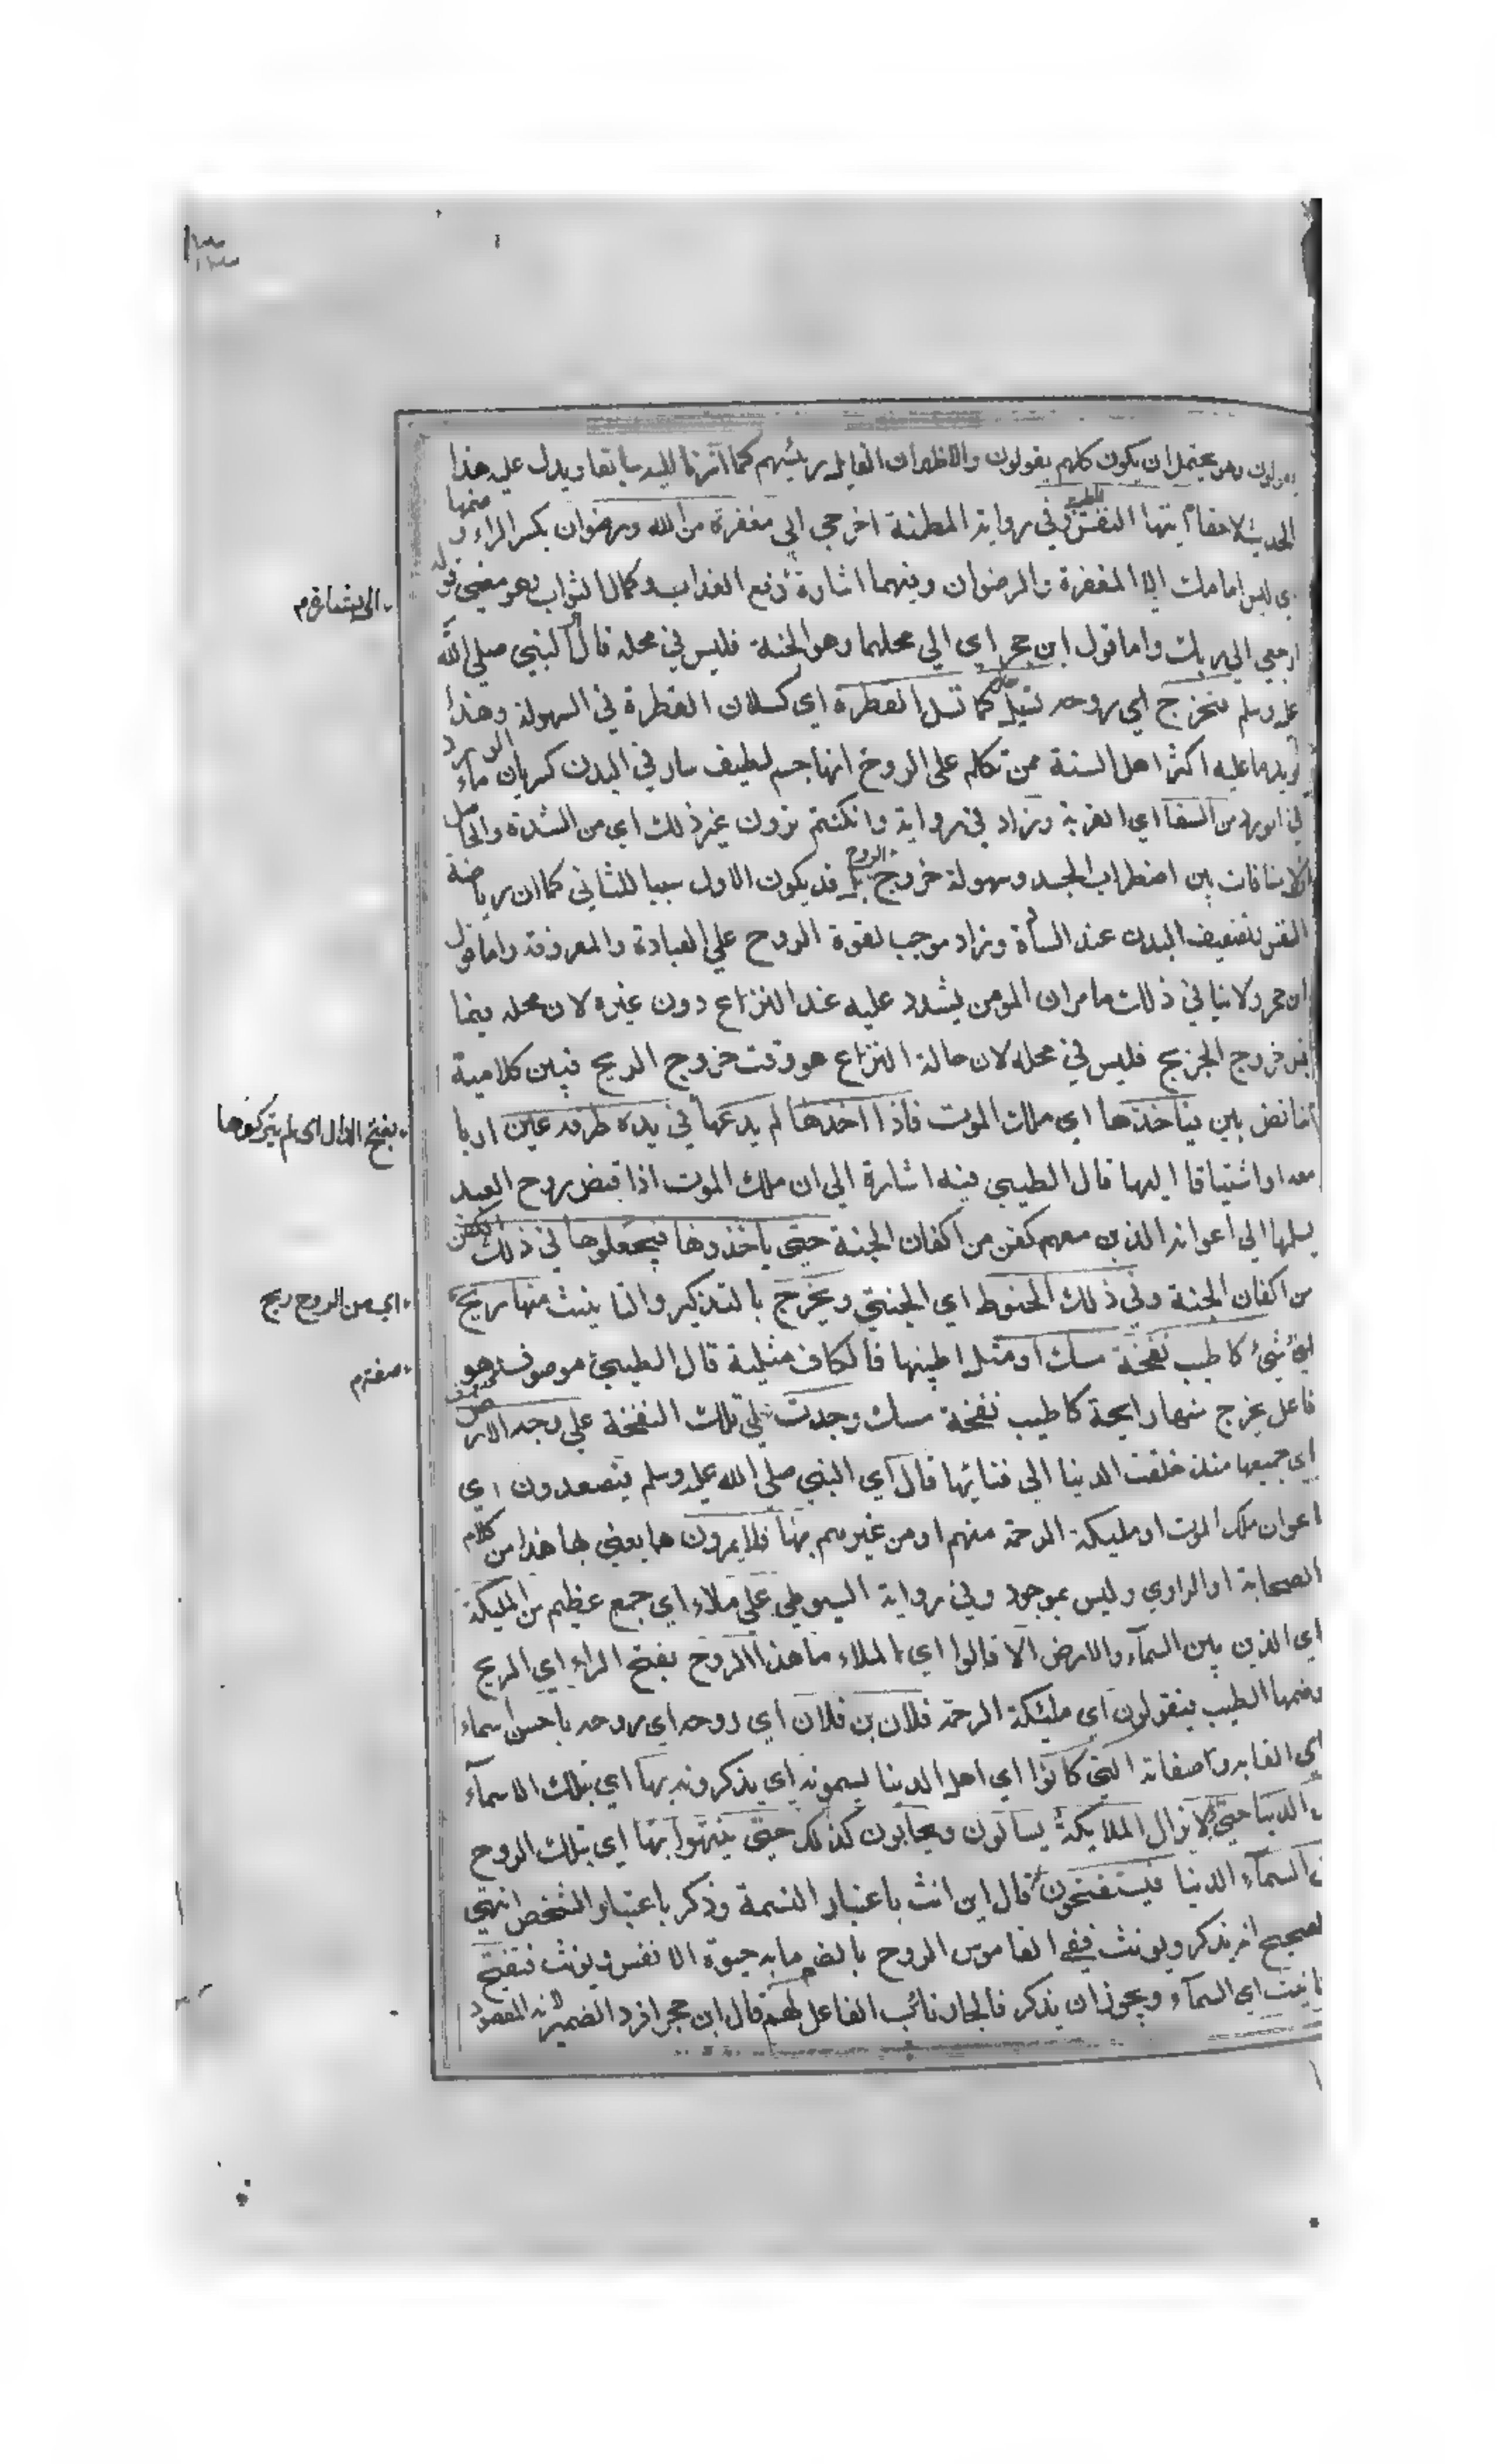 يقولون وهو يحتمل ان يكون كلهم يقولون والاظهر ان القايل رئيسهم كما اشرنا اليه سابقا ويدل عليه هذا
الحديث لاحقا ايتها النفس الطيبة وفي رواية المطمئنة اخرجي الى مغفرة من الله ورضوان بكسر الراء وضمها
اي ليس امامك الا المغفرة والرضوان وفيهما اشارة دفع العذاب وكمال الثواب وهو معنى قوله
ارجعي الي ربك واما قول ابن حجر اي الي محلهما وهو الجنة فليس في محله قال النبي صلي الله
عليه وسلم فتخرج اي روحه تسيل كما تسيل القطرة اي كسيلان القطرة في السهولة وهذا
يؤيد ما عليه اكثر اهل السنة ممن تكلم على الروح انها جسم لطيف سار في البدن كسريان ماء الورد
في الورد من السقا اي القربة وزاد في رواية وان كنتم ترون غير ذلك اي من الشدة والحاصل
ان لا منافات بين اضطراب الجسد وسهولة خروج الروح بل قد يكون الاول سببا للثاني كما ان رياضة
النفس بتضعيف البدن عند السادة وزاد موجب لقوة الروح علي العبادة والمعرفة واما قول
ابن حجر ولا ينافي ذلك ما مر ان المومن يشدد عليه عند النزاع دون غيره لان محله فيما
قبل خروج الروح فليس في محله لان حالة النزاع هو وقت خروج الروح فبين كلاميه
تناقض بين فيأخذها اي ملك الموت فاذا اخذها لم يدعها في يده طرفة عين ادبا
معه او اشتياقا اليها قال الطيبي فيه اشارة الى ان ملك الموت اذا قبض روح العبد
يسلمها الى اعوانه الذين معهم كفن من اكفان الجنة حتى ياخذوها فيجعلوها في ذلك الكفن
من اكفان الجنة وفي ذلك الحنوط اي الجنتي ويخرج بالتذكير والتانيث منها ريح
اي شيئ كاطيب نفحة مسك او مثل اطيبها فالكاف مثلية قال الطيبي موصوف هو
فاعل يخرج منها رايحة كاطيب نفحة مسك وجدت اي تلك النفحة على وجه الارض
اي جميعها منذ خلقت الدنيا الى فنائها قال اي النبي صلى الله عليه وسلم فيصعدون اي
اعوان ملك الموت او مليكة الرحمة منهم او من غيرهم بها فلا يمرون هما يعني بها هذا من كلام
الصحابة او الراوي وليس بموجود وفي رواية السيوطي على ملاء اي جمع عظيم من المليكة
اي الذين بين السماء والارض الا قالوا اي الملاء ما هذا الروح بفتح الراء اي الريح
وضمها الطيب فيقولون اي مليكة الرحمة فلان بن فلان اي روحه اي روحه باحسن اسماء
اي القابه وصفاته التي كانوا اي اهل الدنيا يسمونه اي يذكرونه بها اي بتلك الاسماء
في الدنيا حتى لا يزال الملايكة يسألون ويجابون كذلك حتى ينتهوا بها اي بتلك الروح
الى السماء الدنيا فيستفتحون قال ابن انث باعتبار النسمة وذكر باعتبار الشخص انتهى
الصحيح انه يذكر ويونث ففي القاموس الروح بالضم ما به حيوة الانفس ويونث فتفتح
تانيث اي السماء ويجوز ان يذكر فالجار نائب الفاعل لهم قال ابن حجر افرد الضمير لانه المقصود
بفتح الدال اي لم يتركوها
اي من الروح ريح
صفة م